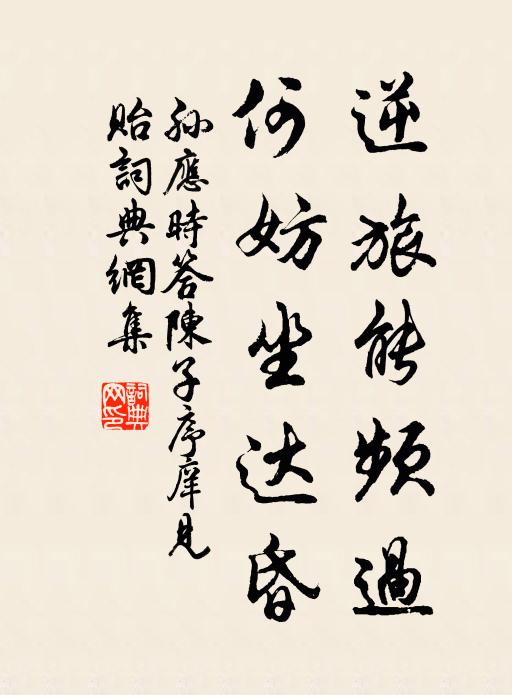 逆旅能頻過
何妨坐达昏
孙應時答陳子序庠見
貽詞典網集
詞典网印